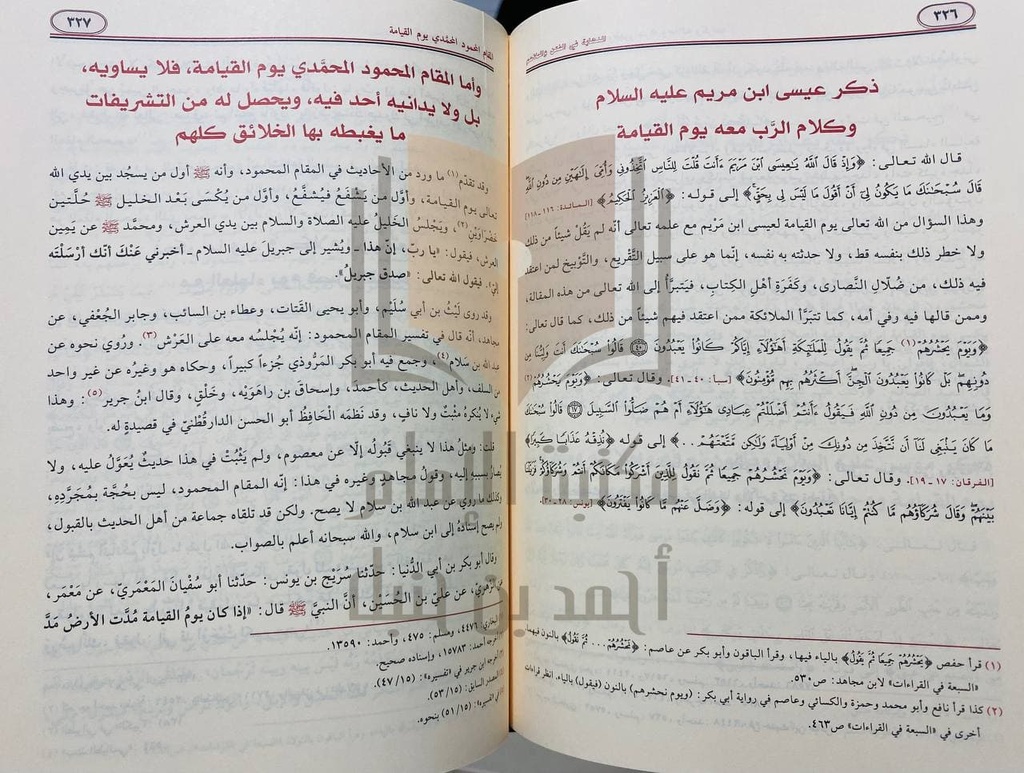 ٣٢٦
ذكر عيسى ابن مريم عليه السلام
وكلام الرَّب معه يوم القيامة
قال الله تعالى: ﴿وَإِذْ قَالَ اللَّهُ يَاعِيسَى ابْنَ مَرْيَمَ ءَأَنتَ قُلْتَ لِلنَّاسِ اتَّخِذُونِي وَأُمِّيَ إِلَهَيْنِ مِن دُونِ اللَّهِ
قَالَ سُبْحَانَكَ مَا يَكُونُ لِي أَنْ أَقُولَ مَا لَيْسَ لِي بِحَقٍّ﴾ إلى قوله: ﴿الْعَزِيزُ الْحَكِيمُ﴾ [المائدة: ١١٦ ـ ١١٨]
وهذا السؤال من الله تعالى يوم القيامة لعيسى ابن مَرْيم مع علمه تعالى أنّه لم يَقُلْ شيئاً من ذلك
ولا خطر ذلك بنفسه قط، ولا حدثته به نفسه، إنّما هو على سبيل التَّقْريع، والتَّوْبيخ لمن اعتقد
فيه ذلك، من ضُلال النَّصارى، وكَفَرَةِ أهْلِ الكِتابِ، فيَتبرَّأُ إلى الله تعالى من هذه المقالة،
وممن قالها فيه وفي أمه، كما تتبَرَّأ الملائكة ممن اعتقد فيهم شيئاً من ذلك، كما قال تعالى:
﴿وَيَوْمَ يَحْشُرُهُمْ (١) جَمِيعًا ثُمَّ يَقُولُ لِلْمَلَائِكَةِ أَهَؤُلَاءِ إِيَّاكُمْ كَانُوا يَعْبُدُونَ ٤٠ قَالُوا سُبْحَانَكَ أَنتَ وَلِيُّنَا مِن
دُونِهِم بَلْ كَانُوا يَعْبُدُونَ الْجِنَّ أَكْثَرُهُم بِهِم مُّؤْمِنُونَ﴾ [سبأ: ٤٠ ـ ٤١]. وقال تعالى: ﴿وَيَوْمَ يَحْشُرُهُمْ (٢)
وَمَا يَعْبُدُونَ مِن دُونِ اللَّهِ فَيَقُولُ ءَأَنتُمْ أَضْلَلْتُمْ عِبَادِي هَؤُلَاءِ أَمْ هُمْ ضَلُّوا السَّبِيلَ ١٧ قَالُوا سُبْحَانَكَ
مَا كَانَ يَنبَغِي لَنَا أَن نَّتَّخِذَ مِن دُونِكَ مِنْ أَوْلِيَاءَ وَلَكِن مَّتَّعْتَهُمْ . . .﴾ إلى قوله ﴿نُذِقْهُ عَذَابًا كَبِيرًا﴾
[الفرقان: ١٧ ـ ١٩]. وقال تعالى: ﴿وَيَوْمَ نَحْشُرُهُمْ جَمِيعًا ثُمَّ نَقُولُ لِلَّذِينَ أَشْرَكُوا مَكَانَكُمْ أَنتُمْ وَشُرَكَاؤُكُمْ فَزَيَّلْنَا
بَيْنَهُمْ وَقَالَ شُرَكَاؤُهُم مَّا كُنتُمْ إِيَّانَا تَعْبُدُونَ﴾ إلى قوله: ﴿وَضَلَّ عَنْهُم مَّا كَانُوا يَفْتَرُونَ﴾ [يونس: ٢٨ ـ ٣٠].
(١) قرأ حفص ﴿يَحْشُرُهُمْ جَمِيعًا ثُمَّ يَقُولُ﴾ بالياء فيها، وقرأ الباقون وأبو بكر عن عاصم: ﴿نَحْشُرُهُمْ . . . ثُمَّ نَقُولُ﴾ بالنون فيهما.
«السبعة في القراءات» لابن مجاهد: ص٥٣٠.
(٢) كذا قرأ نافع وأبو محمد وحمزة والكسائي وعاصم في رواية أبي بكر: (ويوم نحشرهم) بالنون (فيقول) بالياء. انظر قراءات
أخرى في «السبعة في القراءات» ص٤٦٣.
المقام المحمود المحمّدي يوم القيامة
٣٢٧
وأما المقام المحمود المحمَّدي يوم القيامة، فلا يساويه،
بل ولا يدانيه أحد فيه، ويحصل له من التشريفات
ما يغبطه بها الخلائق كلهم
وقد تقدّم (١) ما ورد من الأحاديث في المقام المحمود، وأنه ﷺ أول من يسجُد بين يدي الله
تعالى يوم القيامة، وأوَّل من يَشْفَعُ فيُشفَّعُ، وأوَّل من يُكْسَى بَعْد الخليل ﷺ حُلَّتين
خَضْرَاوَيْنِ (٢)، ويَجْلسُ الخَليلُ عليه الصلاة والسلام بين يدي العرش، ومحمَّد ﷺ عن يَمِين
العرش، فيقول: «يا ربّ، إنّ هذا ـ ويُشير إلى جبريلَ عليه السلام ـ أخبرني عَنْكَ أنّك أرْسَلْتَه
إليّ». فيقول الله تعالى: «صدق جبريلُ».
وقد روى لَيْثُ بن أبي سُلَيْم، وأبو يحيى القَتات، وعطاء بن السائب، وجابر الجُعْفي، عن
مجاهد، أنّه قال في تفسير المقام المحمود: إنّه يُجْلسُه معه على العَرْش (٣). ورُوي نحوه عن
عبد الله بن سَلام (٤)، وجمع فيه أبو بكر المَرُّوذي جُزءاً كبيراً، وحكاه هو وغيرُه عن غير واحد
من السلف، وأهل الحديث، كأحمدَ، وإسحاقَ بن راهَوَيْه، وخَلْقٍ، وقال ابنُ جرير (٥): وهذا
شيء لا يُنكرهُ مثبتٌ ولا نافٍ، وقد نَظَمَه الحَافِظُ أبو الحسن الدارقُطْنيّ في قصيدةٍ له.
قلت: ومثلُ هذا لا ينبغي قَبُولُه إلّا عن معصوم، ولم يَثْبُتْ في هذا حديثٌ يُعَوَّلُ عليه، ولا
يُصارُ بسببه إليه، وقولُ مجاهدٍ وغيره في هذا: إنّه المقام المحمود، ليس بحُجَّة بمُجَرَّدِه،
وكذلك ما رُوي عن عبد الله بن سلام لا يصح. ولكن قد تلقاه جماعة من أهل الحديث بالقبول،
ولم يصح إسنادُهُ إلى ابن سلام، والله سبحانه أعلم بالصواب.
وقال أبو بكر بن أبي الدُّنيا: حدّثنا سُرَيْج بن يونس: حدّثنا أبو سُفْيانَ المَعْمَريّ، عن مَعْمَر،
عن الزهري، عن عليّ بن الحُسَيْن، أنَّ النبيَّ ﷺ قال: «إذا كان يومُ القيامة مُدَّت الأرضُ مَدَّ
البخاري: ٤٤٧٦، ومسلم: ٤٧٥، وأحمد: ١٣٥٩٠.
أخرجه أحمد: ١٥٧٨٣، وإسناده صحيح.
أخرجه ابن جرير في «تفسيره»: (١٥/ ٤٧).
المصدر السابق: (١٥/ ٥٣).
في «تفسيره»: (١٥/ ٥١) بنحوه.
مكتبة الإمام
أحمد بن حنبل